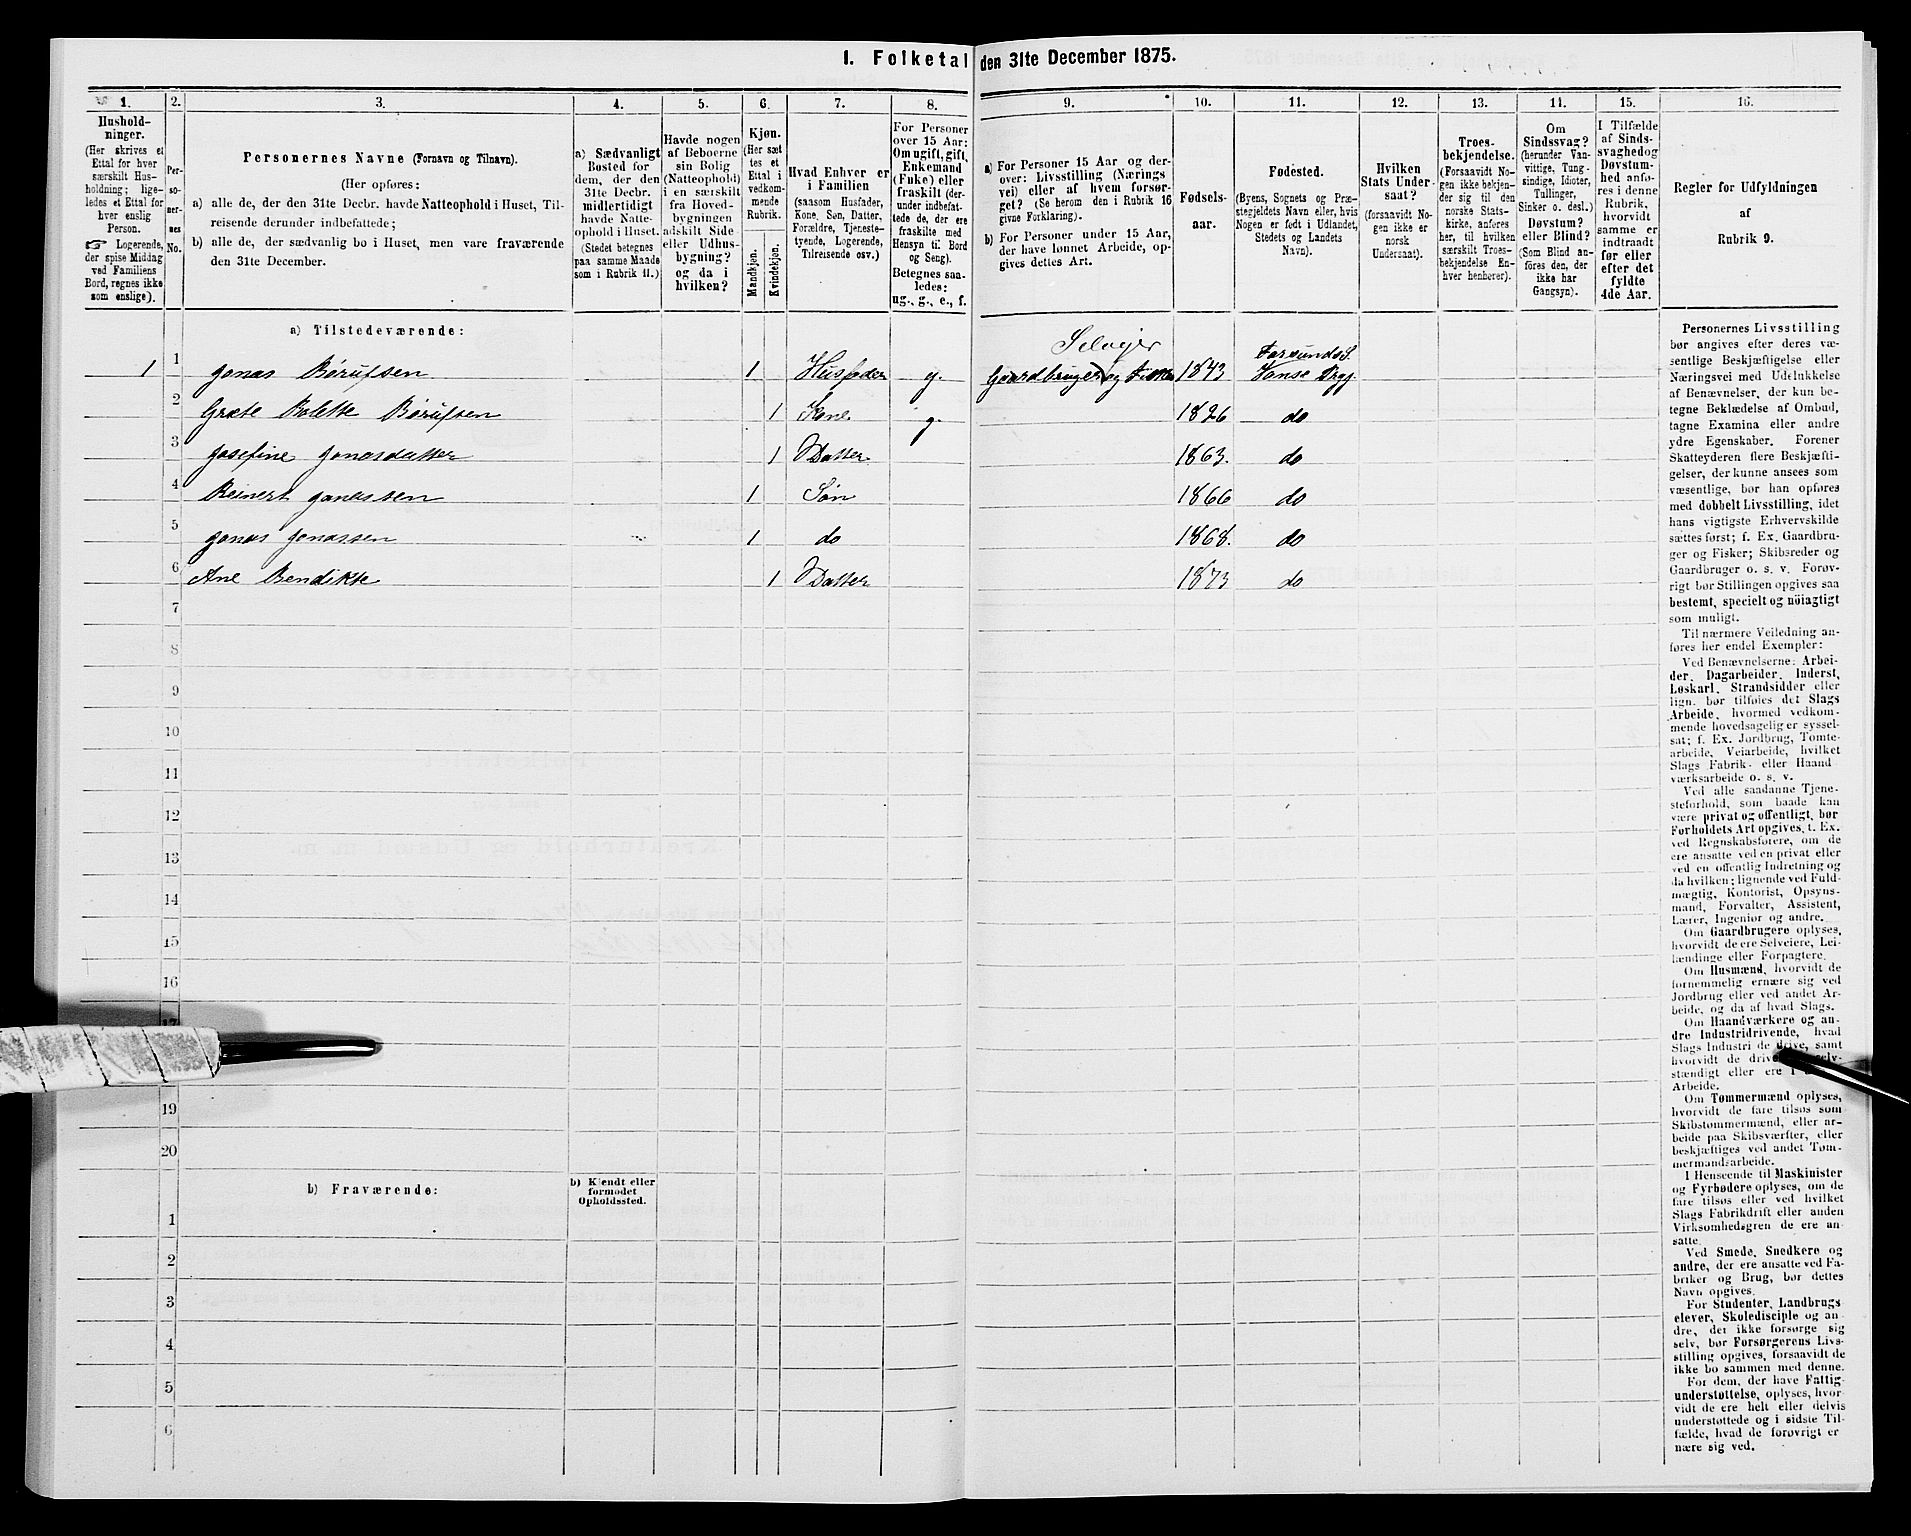 I. Folketal den 31te December 1875.
1.
2.
3.
4.
5.
6.
7.
8.
9.
10.
11.
12.
13.
11.
15.
16.
Hushold-
ninger.
(Her skrives et
Ettal for hver
særskilt Hus-
holdning; lige-
ledes et Ettal for
hver enslig
Person.
☞ Logerende,
der spise Middag
ved Familiens
Bord, regnes ikke
som enslige).
Per-
so-
ner-
nes
No.
Personernes Navne (Fornavn og Tilnavn).
(Her opføres:
a) alle de, der den 31te Decbr. havde Natteophold i Huset, Til-
reisende derunder indbefattede;
b) alle de, der sædvanlig bo i Huset, men vare fraværende
den 31te December.
a) Sædvanligt
Bosted for
dem, der den
31te Decbr.
midlertidigt
havde Natte-
ophold i Huset.
(Stedet betegnes
paa samme Maade
som i Rubrik 11.)
Havde nogen
af Beboerne
sin Bolig
(Natteophold)
i en særskilt
fra Hoved-
bygningen
adskilt Side
eller Udhus-
bygning?
og da i
hvilken?
Kjøn.
(Her sæt-
tes et
Ettal i
vedkom-
mende
Rubrik.
Mandkjøn.
Kvindekjøn.
Hvad Enhver er
i Familien
(saasom Husfader,
Kone, Søn, Datter,
Forældre, Tjeneste-
tyende, Logerende,
Tilreisende osv.)
For Personer
over 15 Aar:
Om ugift, gift,
Enkemand
(Enke) eller
fraskilt (der-
under indbefat-
tede de, der ere
fraskilte med
Hensyn til Bord
og Seng).
Betegnes saa-
ledes:
ug., g., e., f.
a) For Personer 15 Aar og der-
over: Livsstilling (Nærings
vei) eller af hvem forsør-
get? (Se herom den i Rubrik 16
givne Forklaring).
b) For Personer under 15 Aar,
der have lønnet Arbeide, op-
gives dettes Art.
Fødsels-
aar.
Fødested.
(Byens, Sognets og Præ-
stegjeldets Navn eller, hvis
Nogen er født i Udlandet,
Stedets og Landets
Navn).
Hvilken
Stats Under
saat?
(forsaavidt No-
gen ikke er
norsk
Undersaat).
Troes-
bekjendelse.
(Forsaavidt No-
gen ikke bekjen-
der sig til den
norske Stats-
kirke, anføres
her, til hvilken
særskilt Troes-
bekjendelse En-
hver henhører).
Om
Sindssvag?
(herunder Van-
vittige, Tung-
sindige, Idioter,
Tullinger,
Sinker o. desl.)
Døvstum?
eller Blind?
(Som Blind an-
føres den, der
ikke har
Gangsyn).
I Tilfælde
af Sinds-
svaghed og
Døvstum-
hed anfø-
res i denne
Rubrik,
hvorvidt
samme er
indtraadt
før eller
efter det
fyldte
4de Aar.
Regler for Udfyldningen
af
Rubrik 9.
a) Tilstedeværende:
1 1 Jonas Børufsen 1 Husfader g. Selveier Gaardbruger og Fisker 1843 Farsunds S. Vanse Prgj.
2 Grete Bolette Børufsen 1 Kone g. 1826 do
3 Josefine Jonasdatter 1 Datter 1863. do
4 Reinert Jonassen 1 Søn 1866 do
5 Jonas Jonassen 1 do 1868. do
6 Ane Bendikte 1 Datter 1873 do
7
8
9
10
11
12
13
14
15
16
17
19
20
b) Fraværende:
b) Kjendt eller
formodet
Opholdssted.
1
2
3
4
5
6
Personernes Livsstilling
bør angives efter deres væ-
sentlige Beskjæftigelse eller
Næringsvei med Udelukkelse
af Benævnelser, der kun be-
tegne Beklædelse af Ombud,
tagne Examina eller andre
ydre Egenskaber. Forener
Skatteyderen flere Beskjæfti-
gelser, der kunne ansees som
væsentlige, bør han opføres
med dobbelt Livsstilling, idet
hans vigtigste Erhvervskilde
sættes først; f. Ex. Gaardbru-
ger og Fisker; Skibsreder og
Gaardbruger o. s. v. Forøv-
rigt bør Stillingen opgives saa
bestemt, specielt og nöiagtigt
som muligt.
Til nærmere Veiledning an-
føres her endel Exempler:
Ved Benævnelserne: Arbei-
der, Dagarbeider, Inderst,
Løskarl, Strandsidder eller
lign. bør tilføies det Slags
Arbeide, hvormed vedkom-
mende hovedsagelig er syssel-
sat; f. Ex. Jordbrug, Tomte-
arbeide, Veiarbeide, hvilket
Slags Fabrik- eller Haand
værksarbeide o. s. v.
Ved alle saadanne Tjene-
steforhold, som baade kan
være privat og offentligt, bør
Forholdets Art opgives, t. Ex.
ved Regnskabsførere, om de
ere ansatte ved en privat eller
ved en offentlig Indretning og
da hvilken; lignende ved Fuld-
mægtig, Kontorist, Opsyns-
mand, Forvalter, Assistent,
Lærer, Ingeniør og andre.
Om Gaardbrugere oplyses,
hvorvidt de ere Selveiere, Lei-
lændinge eller Forpagtere.
Om Husmænd, hvorvidt de
fornemmelig ernære sig ved
Jordbrug eller ved andet Ar-
beide, og da af hvad Slags.
Om Haandværkere og an-
dre Industridrivende, hvad
Slags Industri de drive, samt
hvorvidt de drive selv-
stændigt eller ere i
Arbeide.
Om Tømmermænd oplyses,
hvorvidt de fare tilsøs som
Skibstømmermænd, eller ar-
beide paa Skibsværfter, eller
beskjæftiges ved andet Tøm-
mermandsarbeide.
I Henseende til Maskinister
og Fyrbødere oplyses, om de
fare tilsøs eller ved hvilket
Slags Fabrikdrift eller anden
Virksomhedsgren de ere an-
satte.
Ved Smede, Snedkere og
andre, der ere ansatte ved Fa-
briker og Brug, bør dettes
Navn opgives.
For Studenter, Landbrugs
elever, Skoledisciple og an-
dre, der ikke forsørge sig
selv, bør Forsørgerens Livs-
stilling opgives, forsaavidt de
ikke bo sammen med denne.
For dem, der have Fattig-
understøttelse, oplyses, hvor-
vidt de ere helt eller delvis
understøttede og i sidste Til-
fælde, hvad de forøvrigt er
nære sig ved.